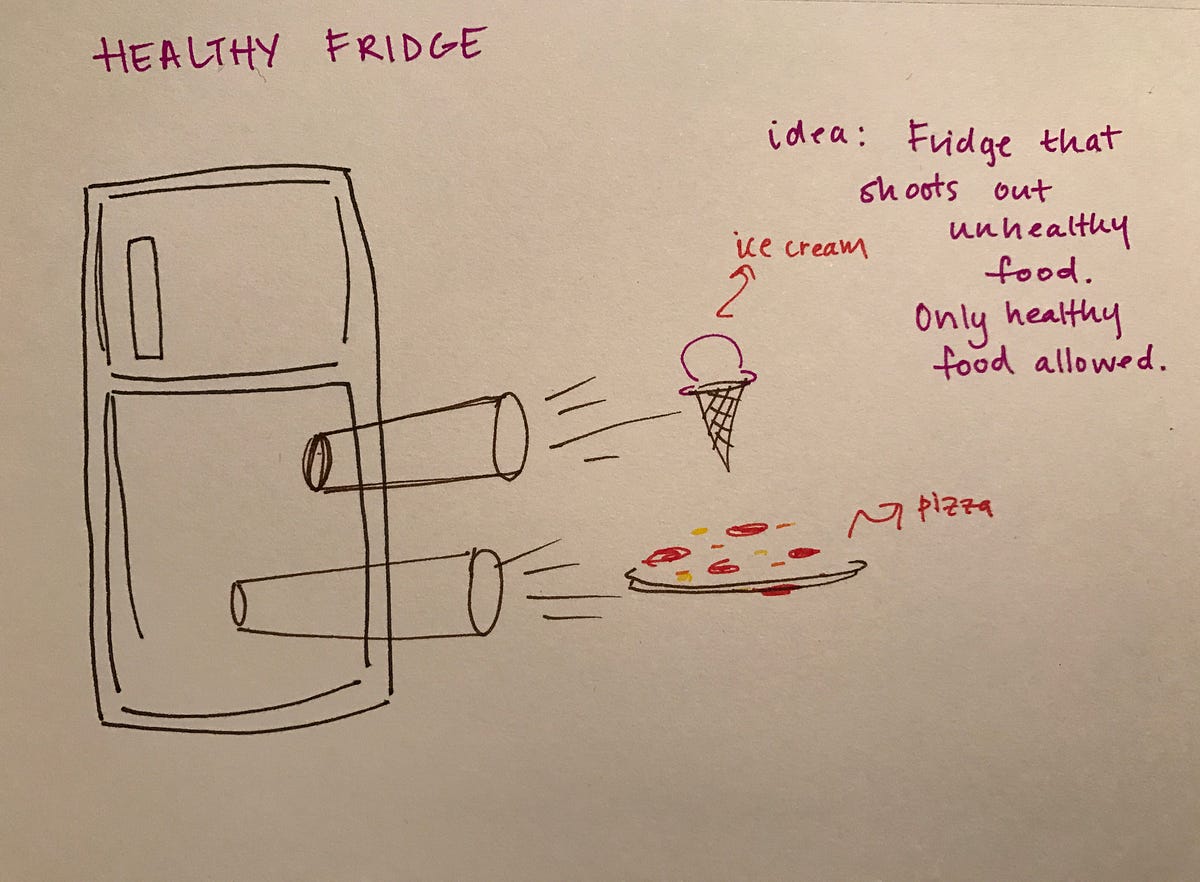 HEALTHY FRIDGE
idea: Fridge that
shoots out
unhealthy
food.
Only healthy
food allowed.
ice cream
pizza